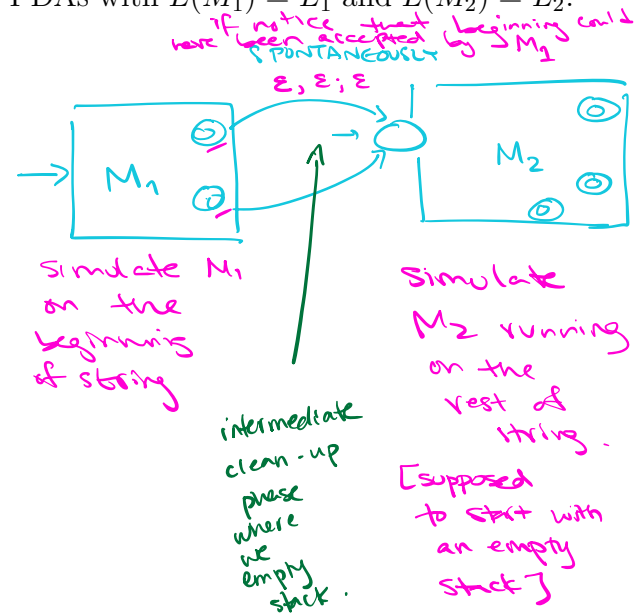 PDAs with L(M₁) = L₁ and L(M₂) = L₂.
if notice that beginning could
have been accepted by M₁
SPONTANEOUSLY
ε, ε; ε
M₁
M₂
simulate M₁
on the
beginning
of string
simulate
M₂ running
on the
rest of
string.
[supposed
to start with
an empty
stack]
intermediate
clean-up
phase
where
we
empty
stack.